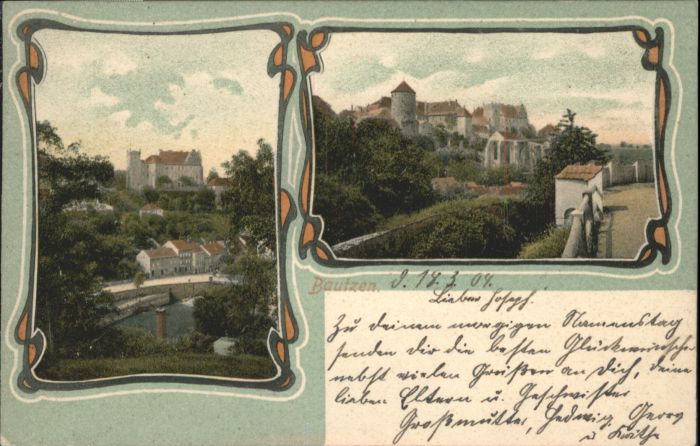 Bautzen. d. 18. 3. 04.
Lieber Joseph!
Zu deinem morgigen Namenstag
senden dir die besten Glückwünsche
nebst vielen Grüßen an Dich, deine
lieben Eltern u. Geschwister
Großmutter, Hedwig, Georg
u. Käthe